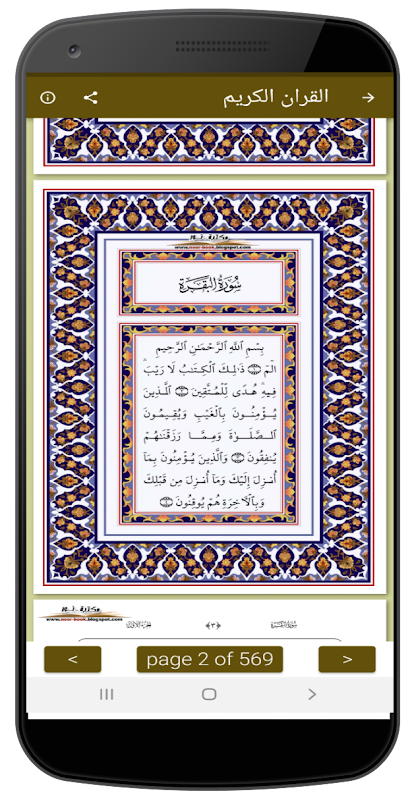 القران الكريم
مكتبة نور
www.noor-book.blogspot.com
سُورَةُ البَقَرَةِ
بِسْمِ اللَّهِ الرَّحْمَٰنِ الرَّحِيمِ
الٓمٓ ۝ ذَٰلِكَ الْكِتَٰبُ لَا رَيْبَ ۛ
فِيهِ ۛ هُدًى لِّلْمُتَّقِينَ ۝ الَّذِينَ
يُؤْمِنُونَ بِالْغَيْبِ وَيُقِيمُونَ
الصَّلَوٰةَ وَمِمَّا رَزَقْنَٰهُمْ
يُنفِقُونَ ۝ وَالَّذِينَ يُؤْمِنُونَ بِمَا
أُنزِلَ إِلَيْكَ وَمَا أُنزِلَ مِن قَبْلِكَ
وَبِالْآخِرَةِ هُمْ يُوقِنُونَ ۝
مكتبة نور
www.noor-book.blogspot.com
سُورَةُ البَقَرَةِ ﴿٣﴾ الجزء الأول
< page 2 of 569 >